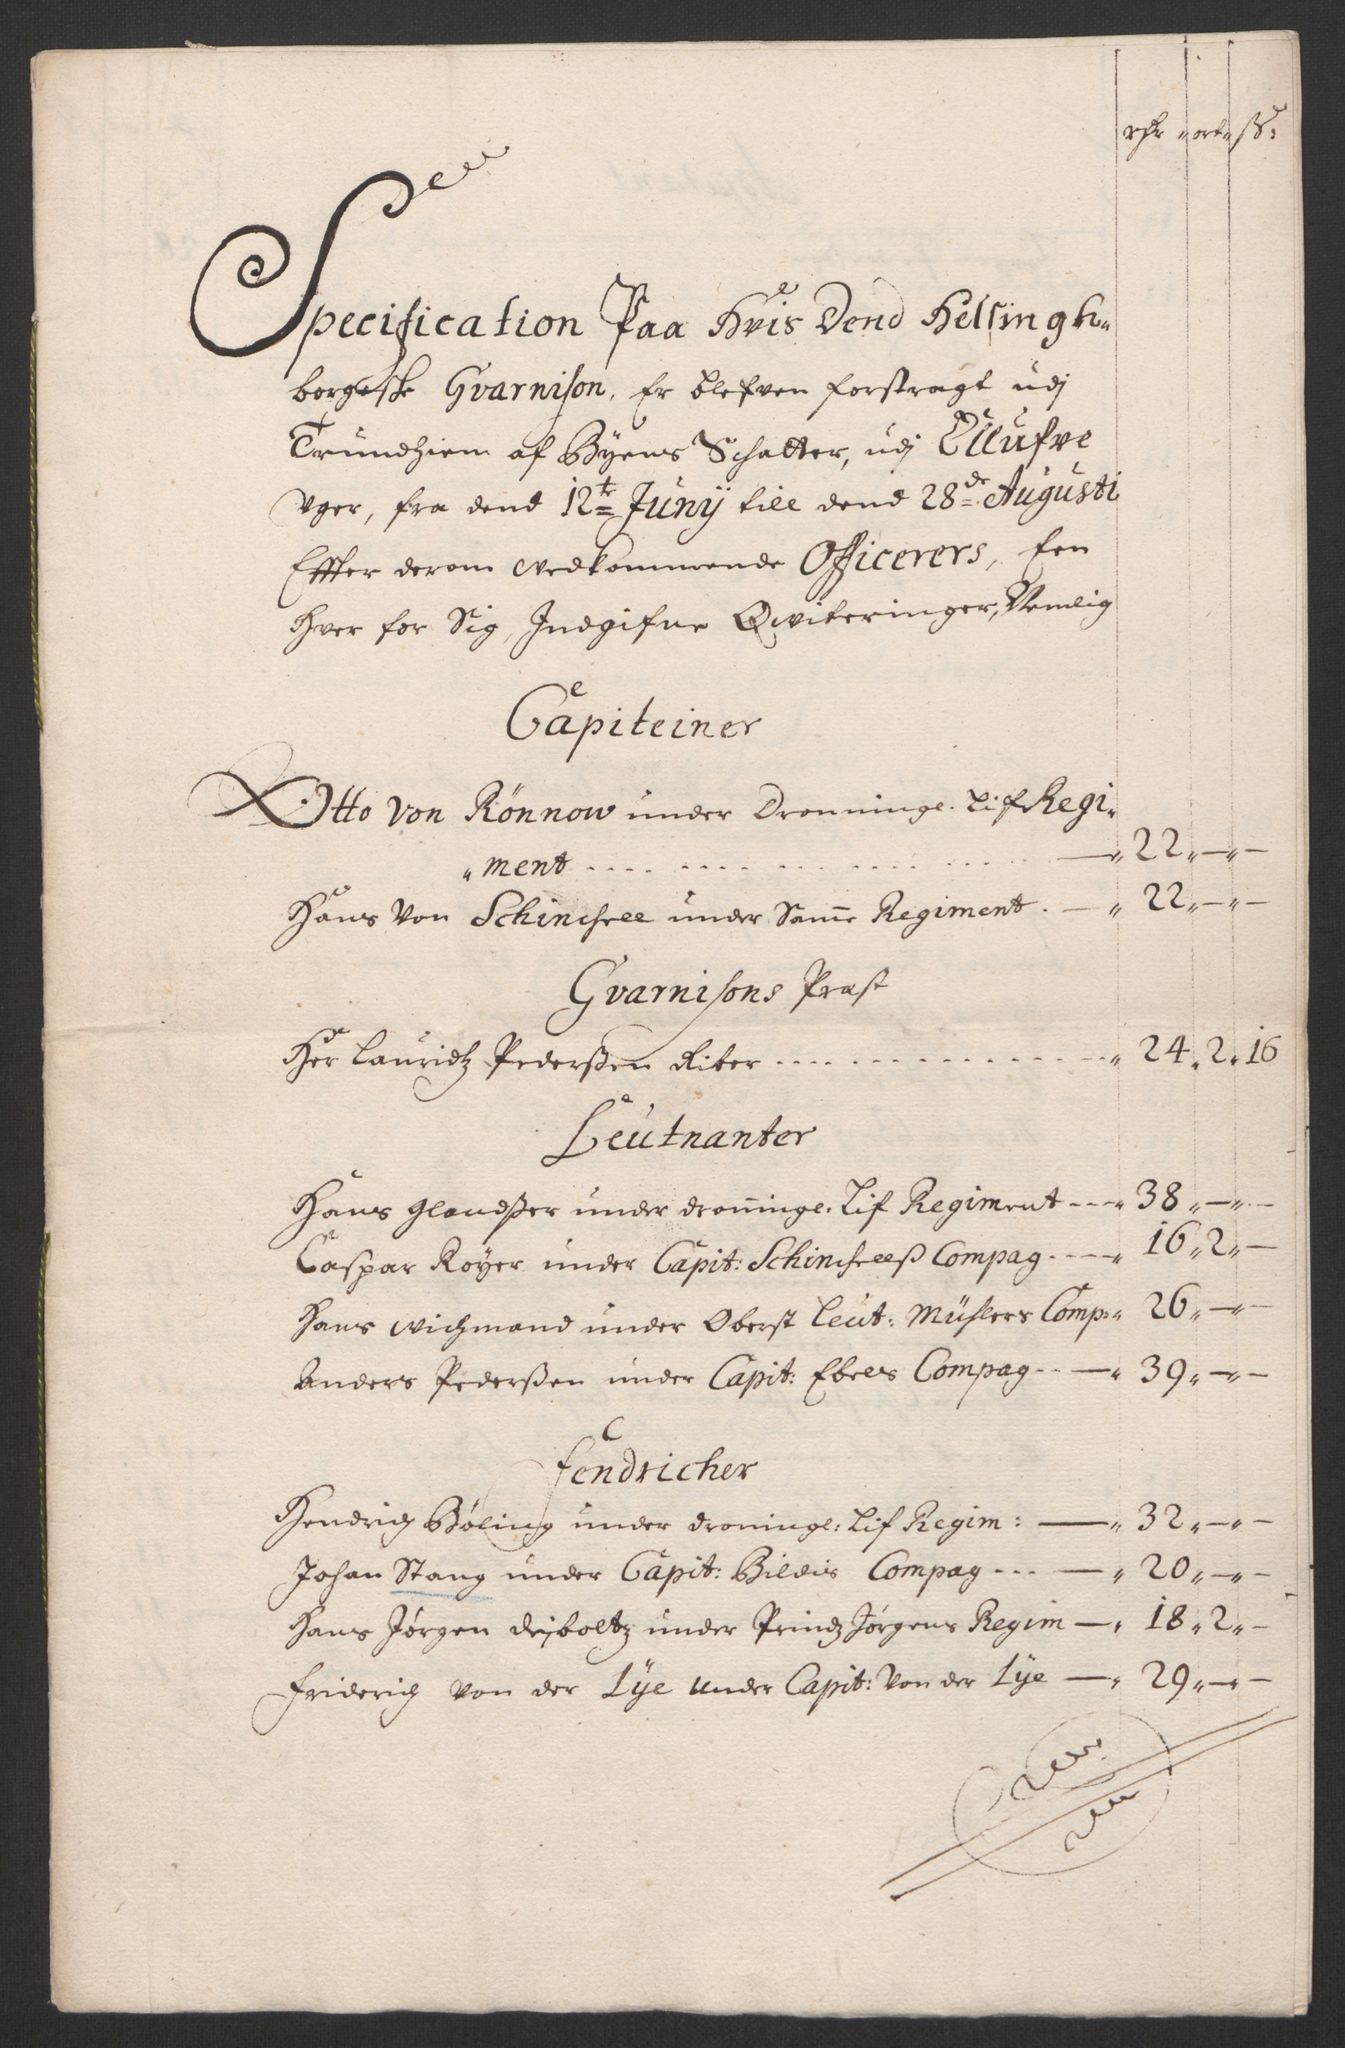 rdr ort ß:
Specification Paa Hvis Dend Helsingh-
borgeske Gvarnison, Er blefven forstragt udj
Trundhiem af Byens Schatter, udj Ellufve
Uger, fra dend 12te Junÿ till dend 28de Augusti
Effter derom vedkommende Officerers, Een
Hver for Sig, Indgifne Qviteringer, Nemlig
Capiteiner
Otto Von Rönnow under Dronningl. Lif Regi-
"ment - - - - 22 „ — „ —
Hans Von Schinchell under Samme Regiment. — 22 „ — „ —
Gvarnisons Præst
Her Lauridtz Pederßen Riber - - - - 24 „ 2 „ 16
Leutnanter
Hans Glandßer under dronningl. Lif Regiment - - - 38 „ — „ —
Caspar Royer under Capit: Schinchellß Compag - - - 16 „ 2 „ —
Hans Wichmand under Oberst Leut: Mühlers Comp: 26 „ — „ —
Anders Pederßen under Capit: Ebels Compag - - — 39 „ — „ —
Fendricher
Hendrich Böling under droningl: Lif Regim: — 32 „ — „ —
Johan Stang under Capit: Bildis Compag - - - — 20 „ — „ —
Hans Jørgen Deÿboltz under Printz Jørgens Regim — 18 „ 2 „ —
Friderich von der Lÿe under Capit: Von der Lÿe — 29 „ — „ —